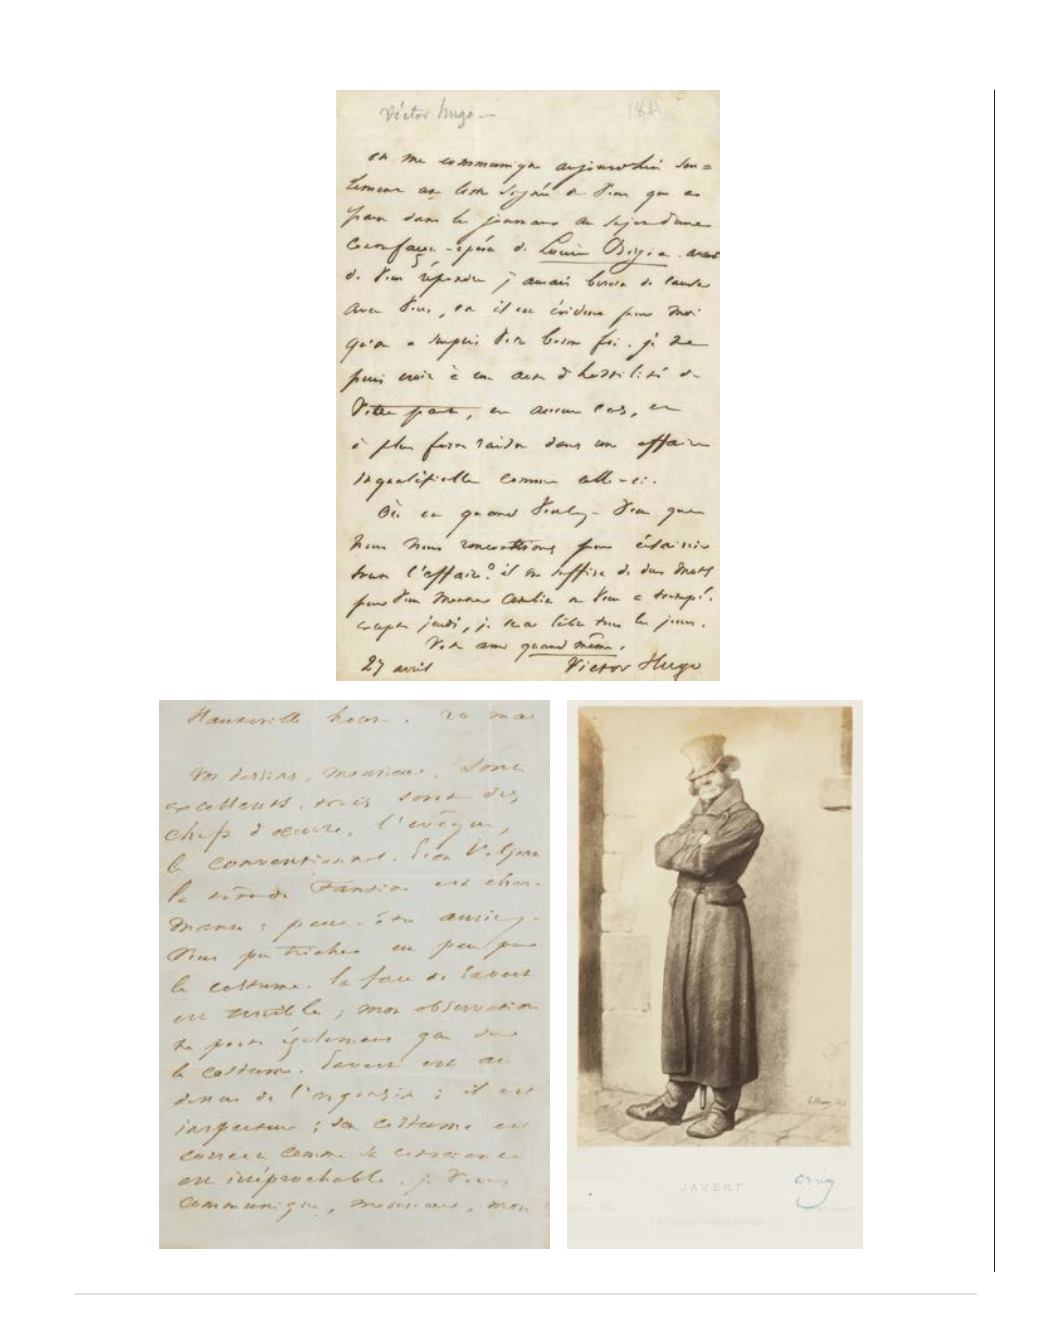 Victor hugo
1841
on me communique aujourd'hui seu=
lement une lettre signée de vous qui a
paru dans les journaux au sujet d'une
contrefaçon-opéra de Lucrèce Borgia. avant
de vous répondre j'aurais besoin de causer
avec vous, car il est évident pour moi
qu'on a surpris votre bonne foi. je ne
puis croire à un acte d'hostilité de
votre part, en aucun cas, et
à plus forte raison dans une affaire
inqualifiable comme celle-ci.
Où et quand voulez-vous que
nous nous rencontrions pour éclaircir
toute l'affaire? il me suffira de deux mots
pour vous montrer combien on vous a trompé.
excepté jeudi, je serai libre tous les jours.
Votre ami quand même.
27 avril Victor Hugo
Hauteville house. 20 mai
Vos dessins, monsieur, sont
excellents. trois sont des
chefs d'œuvre, l'évêque,
le conventionnel. Jean Valjean
la tête de Fantine est char-
mante; peut-être auriez-
vous pu tricher un peu pour
le costume. la face de Javert
est terrible; mon observation
ne porte également que sur
le costume. Javert est au
dessus de l'argousin; il est
inspecteur; son costume est
correct comme sa conscience
est irréprochable. je vous
communique, monsieur, mon
JAVERT